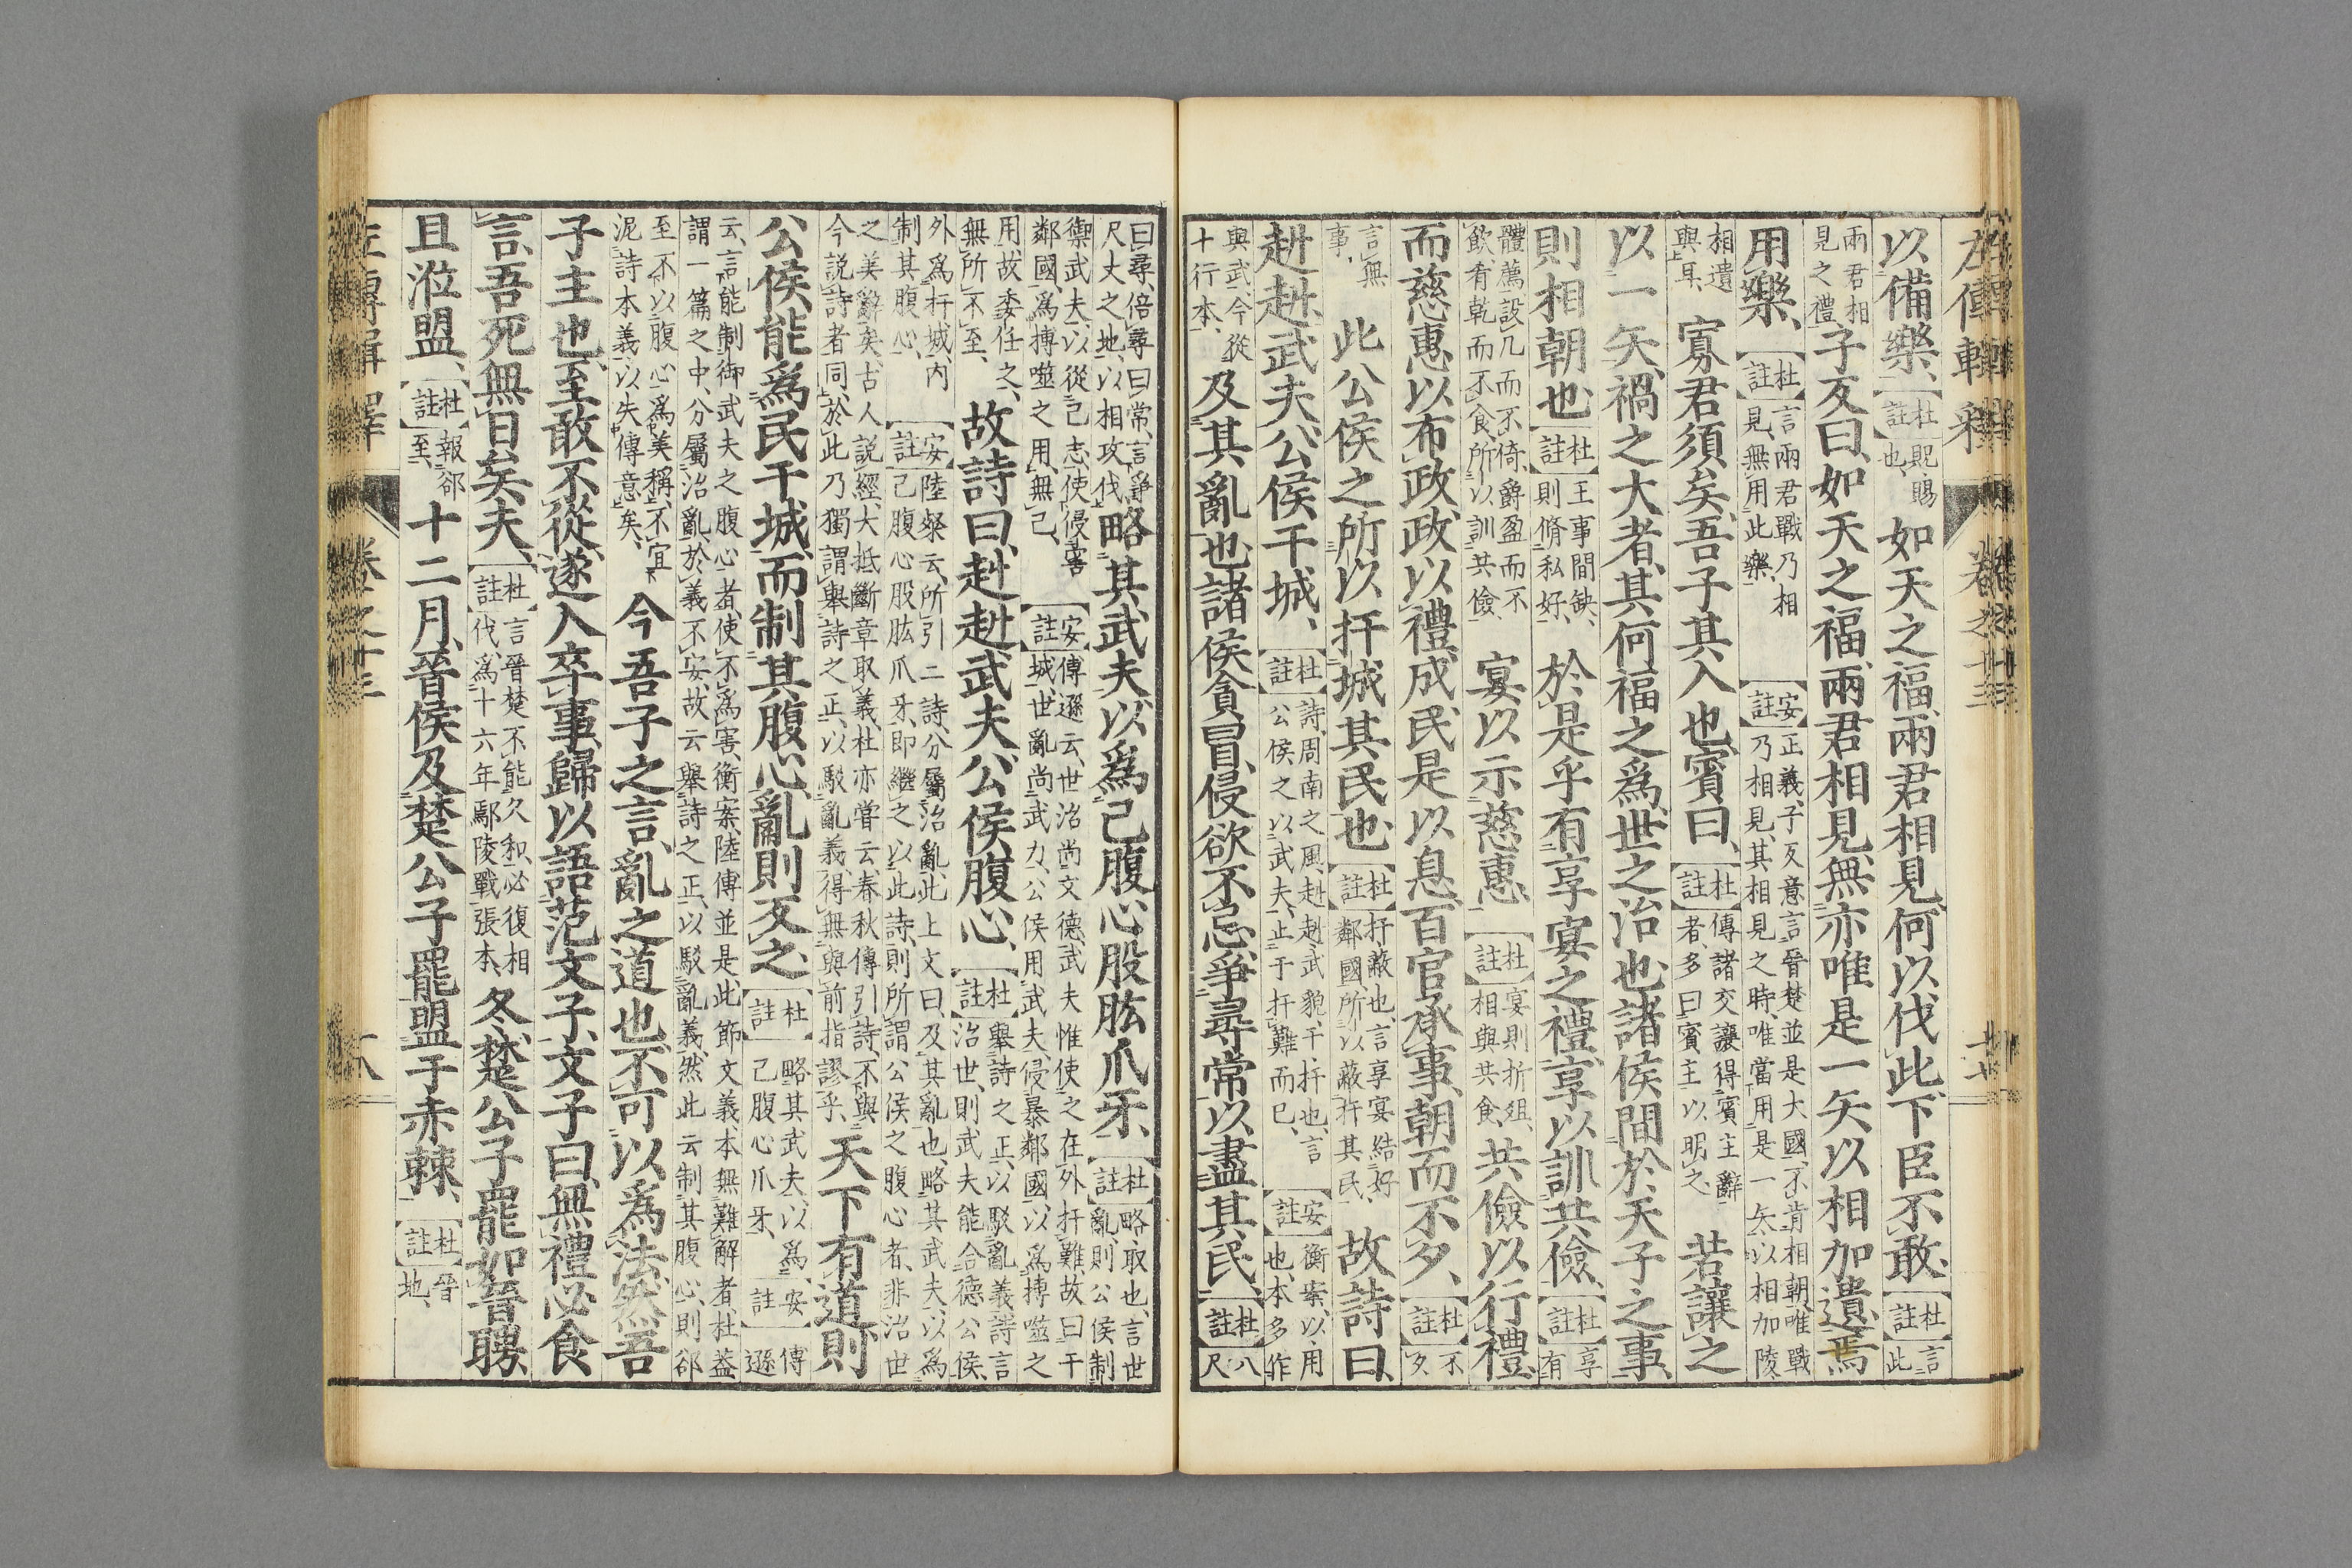 左傳輯釋 卷之十三
以備樂、【杜註】貺、賜也、如天之福、兩君相見、何以代此、下臣不敢、【杜註】言此
兩君相見之禮、子反曰、如天之福、兩君相見、無亦唯是一矢以相加遺、焉
用樂、【杜註】言兩君戰乃相見、無用此樂、【安註】正義、子反意言晉楚並是大國、不肯相朝、唯戰乃相見、其相見之時、唯當用是一矢、以相加陵
相遺與耳、寡君須矣、吾子其入也、賓曰、【杜註】傳諸交讓得賓主辭者、多曰賓主以明之、若讓之
以一矢、禍之大者、其何福之爲、世之治也、諸侯間於天子之事、
則相朝也、【杜註】王事間缺、則脩私好、於是乎有享宴之禮、享以訓共儉、【杜註】享有
體薦、設几而不倚、爵盈而不飲、肴乾而不食、所以訓共儉、宴以示慈惠、【杜註】宴則折俎、相與共食、共儉以行禮、
而慈惠以布政、政以禮成、民是以息、百官承事、朝而不夕、【杜註】不夕
言無事、此公侯之所以扞城其民也、【杜註】扞、蔽也、言享宴結好鄰國、所以蔽扞其民、故詩曰、
赳赳武夫、公侯干城、【杜註】詩、周南之風、赳赳、武貌、干、扞也、言公侯之以武夫、止于扞難而已、【安註】衡案、以、用也、本多作
與武、今從十行本、及其亂也、諸侯貪冒、侵欲不忌、爭尋常以盡其民、【杜註】八尺
曰尋、倍尋曰常、言爭尺丈之地、以相攻伐、略其武夫、以爲己腹心股肱爪牙、【杜註】略、取也、言世亂、則公侯制
禦武夫、以從己志、使侵害鄰國、爲搏噬之用、無已、【安註】傳遜云、世治尚文德、武夫惟使之在外扞難、故曰干城、世亂尚武力、公侯用武夫侵暴鄰國、以爲搏噬之
用、故委任之、無所不至、故詩曰、赳赳武夫、公侯腹心、【杜註】舉詩之正、以駁亂義、詩言治世、則武夫能合德公侯、
外爲扞城、內制其腹心、【安註】陸粲云、所引二詩、分屬治亂、此上文曰、及其亂也、略其武夫、以爲己腹心股肱爪牙、即繼之以此詩、則所謂公侯之腹心者、非治世
之美辭矣、古人説經、大抵斷章取義、杜亦嘗云、春秋傳引詩、不與今説詩者同、於此乃獨謂舉詩之正、以駁亂義、得無與前指謬乎、天下有道、則
公侯能爲民干城、而制其腹心、亂則反之、【杜註】略其武夫、以爲己腹心爪牙、【安註】傳遜
云、言能制御武夫之腹心者、使不爲害、衡案、陸傳並是、此節文義本無難解者、杜葢謂一篇之中、分屬治亂、於義不安、故云舉詩之正、以駁亂義、然此云制其腹心、則郤
至不以腹心爲美稱、不宜泥詩本義、以失傳意矣、今吾子之言、亂之道也、不可以爲法、然吾
子主也、至敢不從、遂入卒事、歸以語范文子、文子曰、無禮必食
言、吾死無日矣夫、【杜註】言晉楚不能久和、必復相伐、爲十六年鄢陵戰張本、冬、楚公子罷如晉聘、
且涖盟、【杜註】報郤至、十二月、晉侯及楚公子罷盟于赤棘、【杜註】晉地、
左傳輯釋 卷之十三